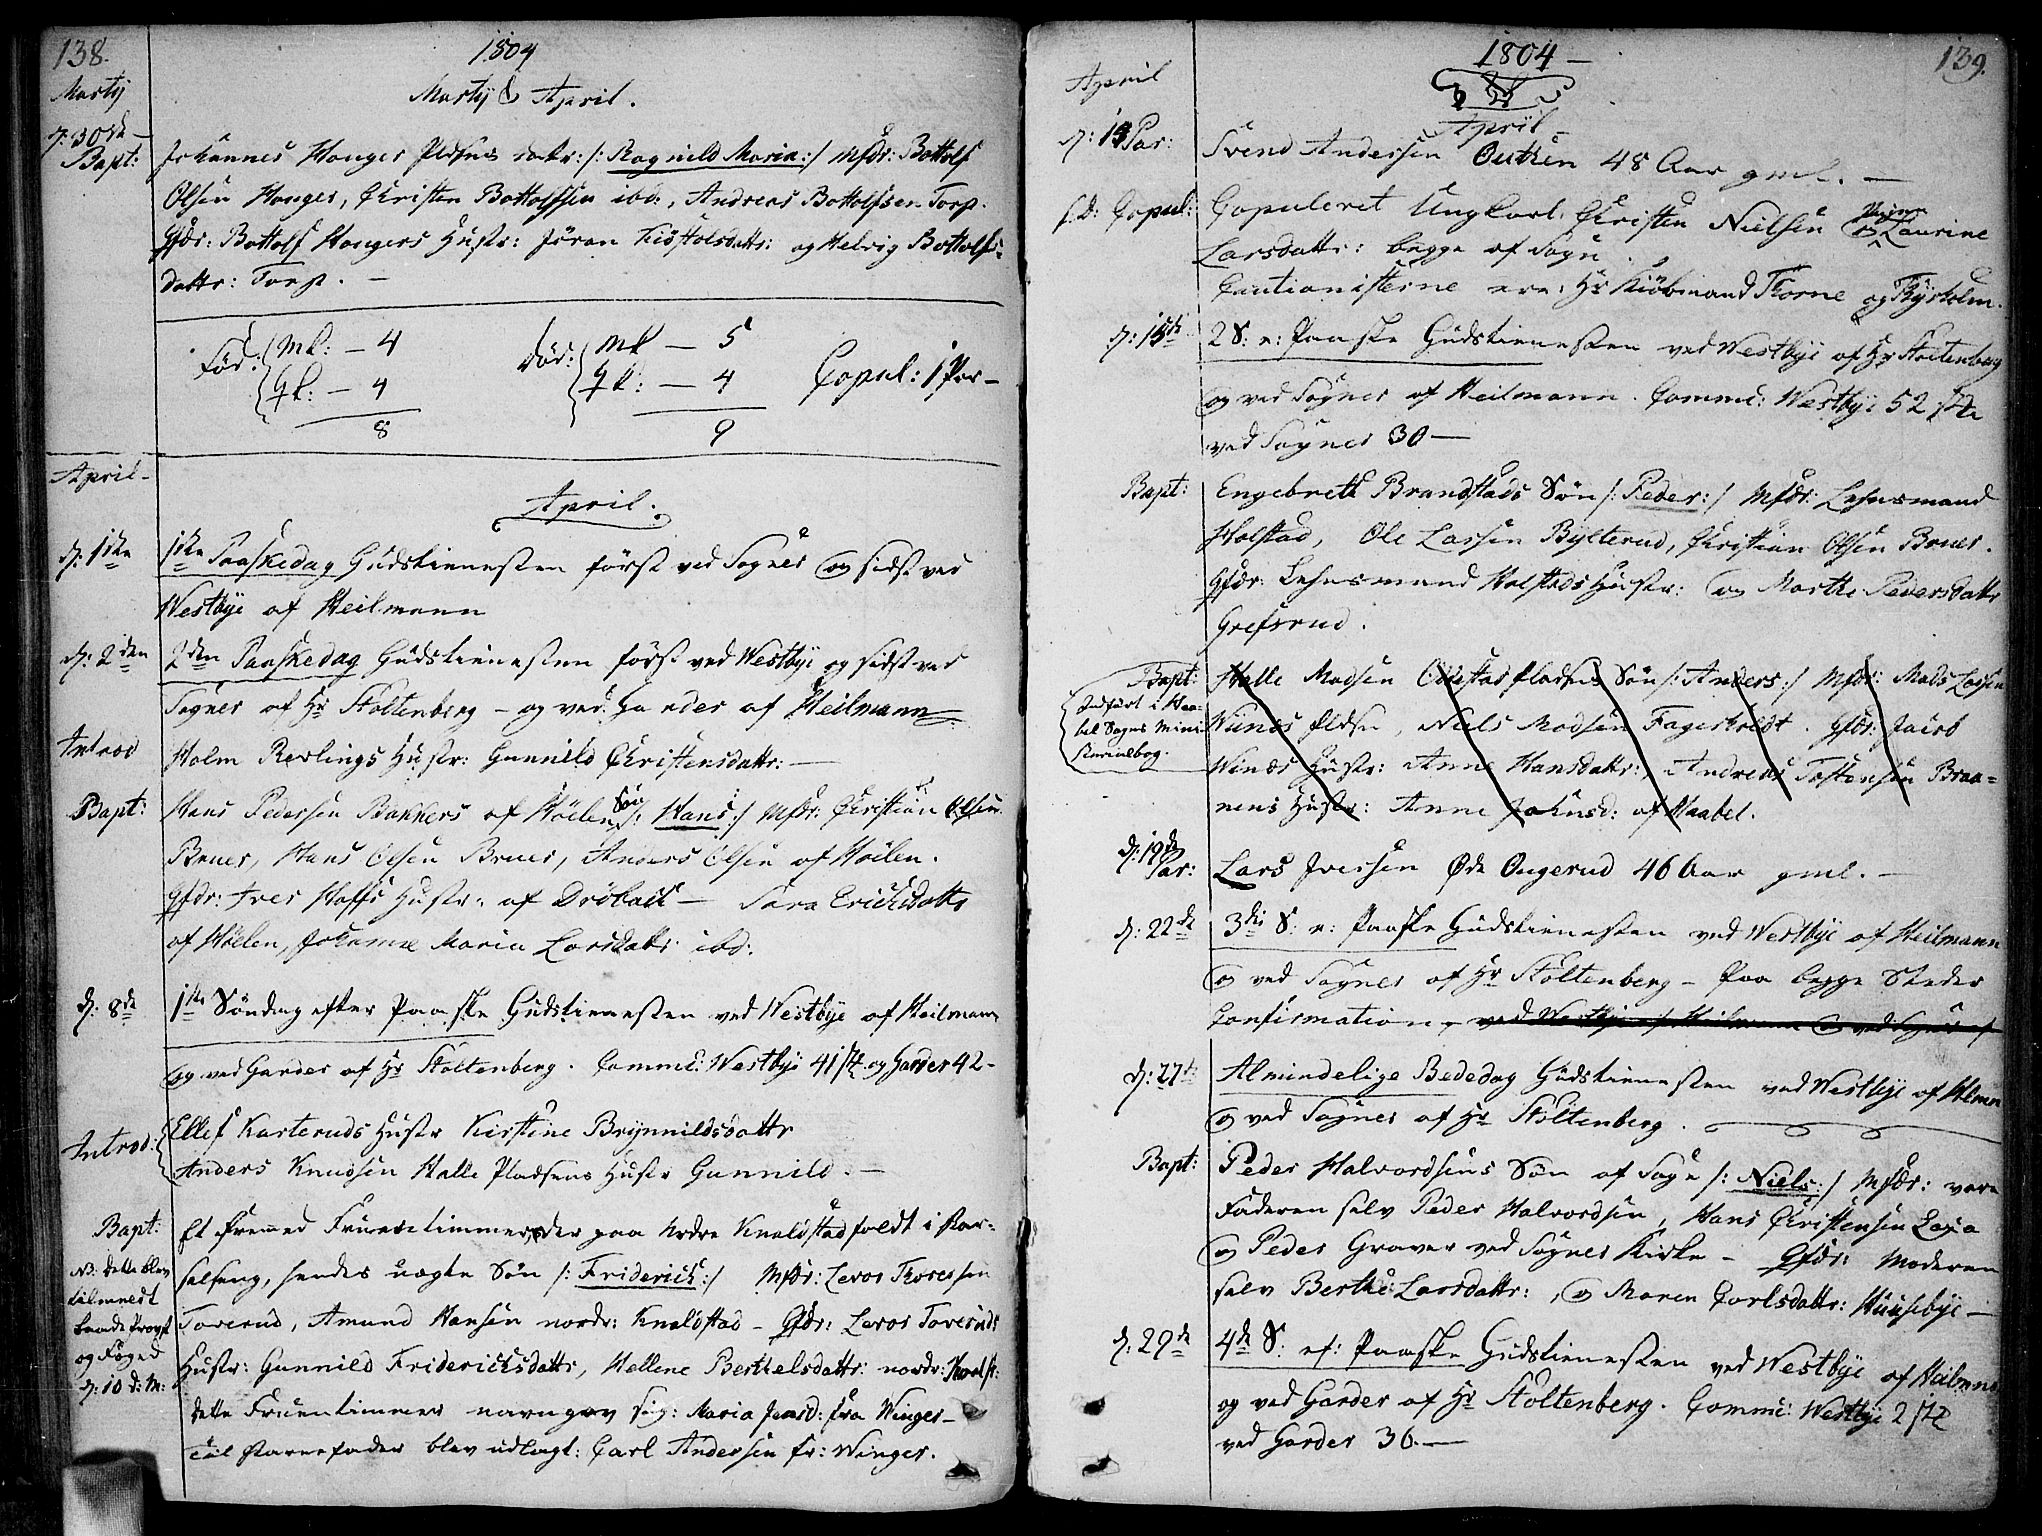 138.
1804
Marty & April.
Marty
d: 30te
Bapt:
Johannes Honger Pldsens datr: /: Ragnild Maria :/ Mfdr: Bottolf
Olsen Honger, Christen Bottolfssen ibd:, Andreas Bottolfsen Torp.
Qfdr: Bottolf Hongers Hustr: Jöran Kiöstolsdattr: og Helvig Bottolfs-
dattr: Torp. —
Fød: Mk: — 4
Qk: — 4
8
død: Mk — 5
Qk: — 4
9
Copul: 1 Par —
April —
April.
d: 1ste
1ste Paaskedag Gudstienesten först ved Sogner og sidst ved
Westbye af Heilmann
d: 2den
2den Paaskedag Gudstienesten först ved Westbye og sidst ved
Sogner af Hr Stoltenberg — og ved Garder af Heilmann
Introd
Holm Revlings Hustr: Gunnild Christensdattr: —
Bapt:
Hans Pedersen Bakkers af Höelen Søn /: Hans :/ Mfdr: Christian Olsen
Bruer, Hans Olsen Bruer, Anders Olsen af Höelen.
Qfdr: Iver Hoffs Hustr: af Dröback — Sara Erichsdattr
af Höelen, Johanne Maria Larsdattr: ibd:
d: 8de
1ste Söndag efter Paaske Gudstienesten ved Westbye af Heilmann
og ved Garder af Hr Stoltenberg. Comme: Westbye 41 stk og Garder 42 —
Introd:
Ellef Karteruds Hustr Kirstine Brynnildsdattr
Anders Knudsen Halle Pladsens Hustr Gunnild. —
Bapt:
Et fremed Fruentimmer, der paa Nordre Knalstad faldt i Bar-
selseng, hendes uægte Søn /: Friderich :/ Mfdr: Levor Thoressen
NB: dette blev
tilmeldt
baade Provst
og Foged
d: 10 d: M:
Taverud, Amund Hansen nordr: Knalstad — Qfdr: Levor Taveruds
Hustr: Gunnild Friderichsdattr, Hellene Berthelsdattr: nordr: Knalst:
dette Fruentimmer navngav sig: Maria Jensd: fra Winger —
til Barnefader blev udlagt: Carl Andersen fr: Winger.
139.
1804 —
April
April
d: 13 Par:
Svend Andersen Outhen 48 Aar gml. —
s.d: Copul:
Copuleret Ungkarl: Christen Nielsen og Pigen Laurine
Larsdattr: begge af Sogn.
Cautionisterne ere: Hr Kiöbmand Thorne og Thyrholm.
d: 15de
2 S: e: Paaske Gudstienesten ved Westbye af Hr Stoltenberg
og ved Sogner af Heilmann. Comme: Westbye 52 stk
ved Sogner 30 —
Bapt:
Engebreth Brandstads Søn /: Peder :/ Mfdr: Lehnsmand
Holstad, Ole Larsen Bylterud, Christian Olsen Bruer.
Qfdr: Lehnsmand Holstads Hustr: og Marthe Pedersdattr
Grefsrud.
Bapt:
Indført i Haa-
bel Sogns Mini-
sterialbog.
Halle Madsen pladsens Søn /: Anders :/ Mfdr: Mads Larsen
Wiines Pldsn, Niels Madsen Fagerholdt. Qfdr: Jacob
Winæs Hustr: Anne Hansdattr:, Andreas Tostensen Braa-
nens Hustr: Anne Johnsd: af Haabel.
d: 19de
Par:
Lars Iversen Øde Ongerud 46 Aar gml. —
d: 22de
3die S: e: Paaske Gudstienesten ved Westbye af Heilmann
og ved Sogner af Hr Stoltenberg — Paa begge Steder
Confirmation, ved Westbye af Heilmann og ved Sogner af
d: 27de
Almindelige Bededag Gudstienesten ved Westbye af Hlmn
og ved Sogner af Hr Stoltenberg.
Bapt:
Peder Halvordsens Søn af Sogn /: Niels :/ Mfdr: vare
Faderen selv Peder Halvordsen, Hans Christensen
og Peder Graver ved Sogner Kirke — Qfdr: Moderen
selv Berthe Larsdattr:, og Maren Carlsdattr: Huusebye —
d: 29de
4de S: ef: Paaske Gudstienesten ved Westbye af Heilmn
og ved Garder af Hr Stoltenberg. Comme: Westbye 2 stk
ved Garder 36. —